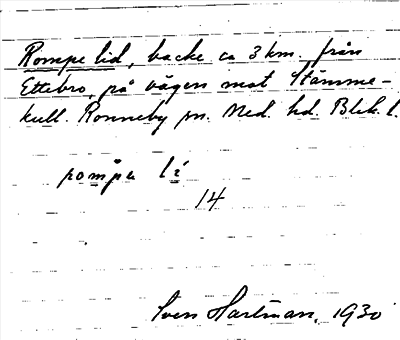 Rompe lid, backe ca 3 km. från
Ettebro, på vägen mot Stämme-
kull. Ronneby sn. Med. hd. Blek. l.
rompa li
14
Sven Hartman, 1930